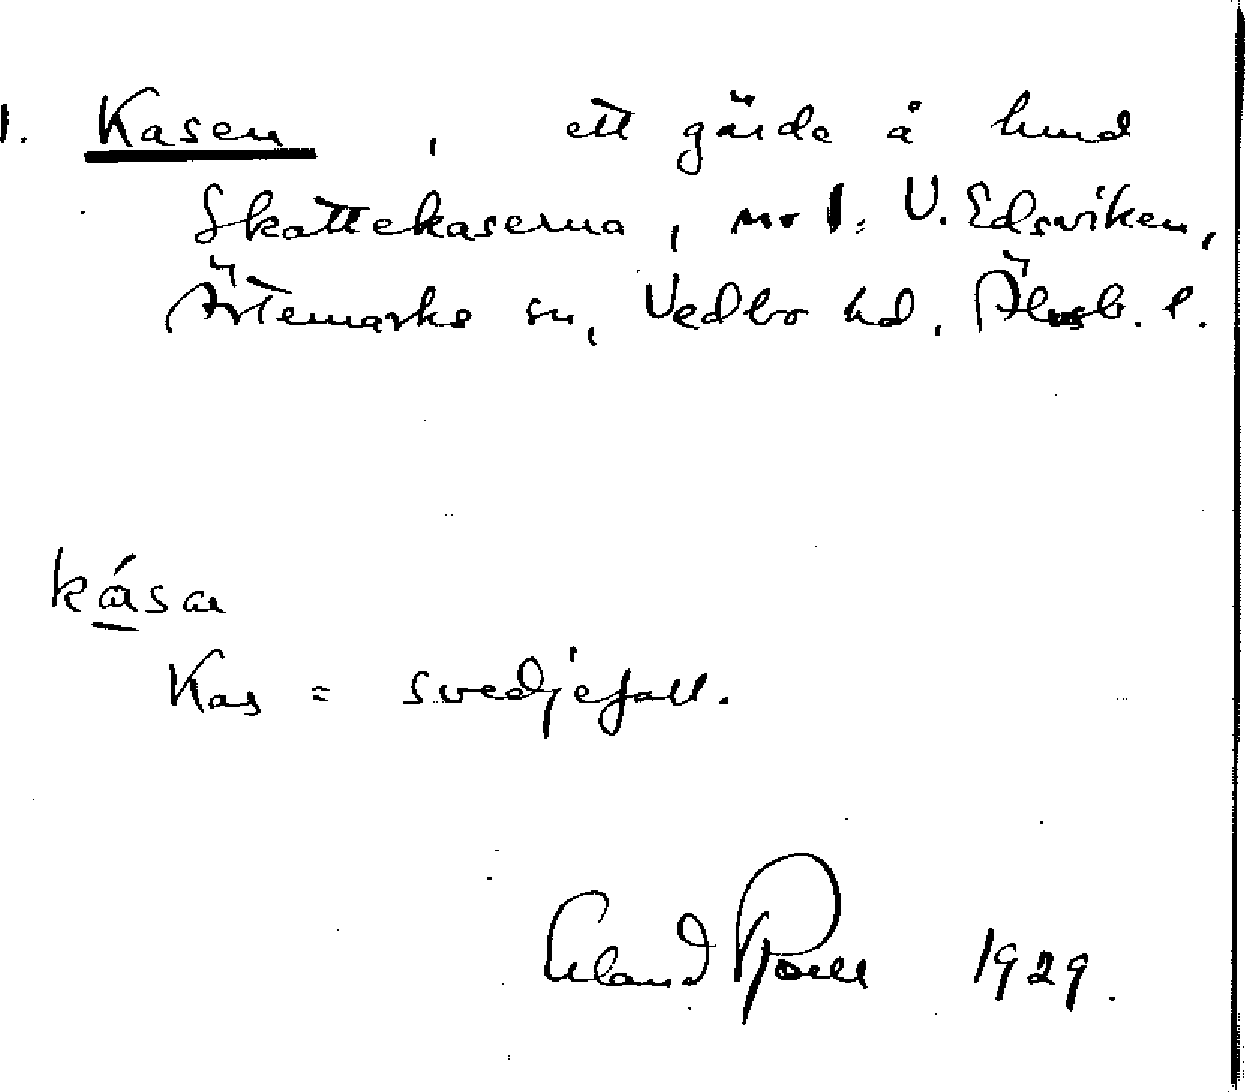 1. Kasen, ett gärde å hmd
Skattekaserna, nr 1: V. Edsviken,
Ärtemarks sn, Vedbo hd, Älvsb. l.
kása
Kas = svedjefall.
Erland Rosell 1929.